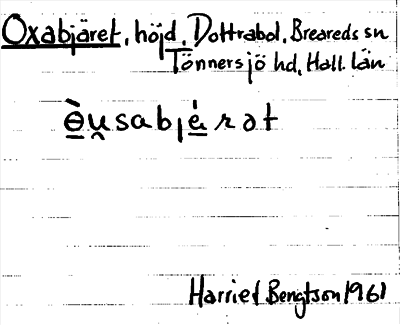 Oxabjäret, höjd, Dottrabol, Breareds sn
Tönnersjö hd, Hall. län
ɵ̲̀u̯sabjé̲rət
Harriet Bengtson 1961